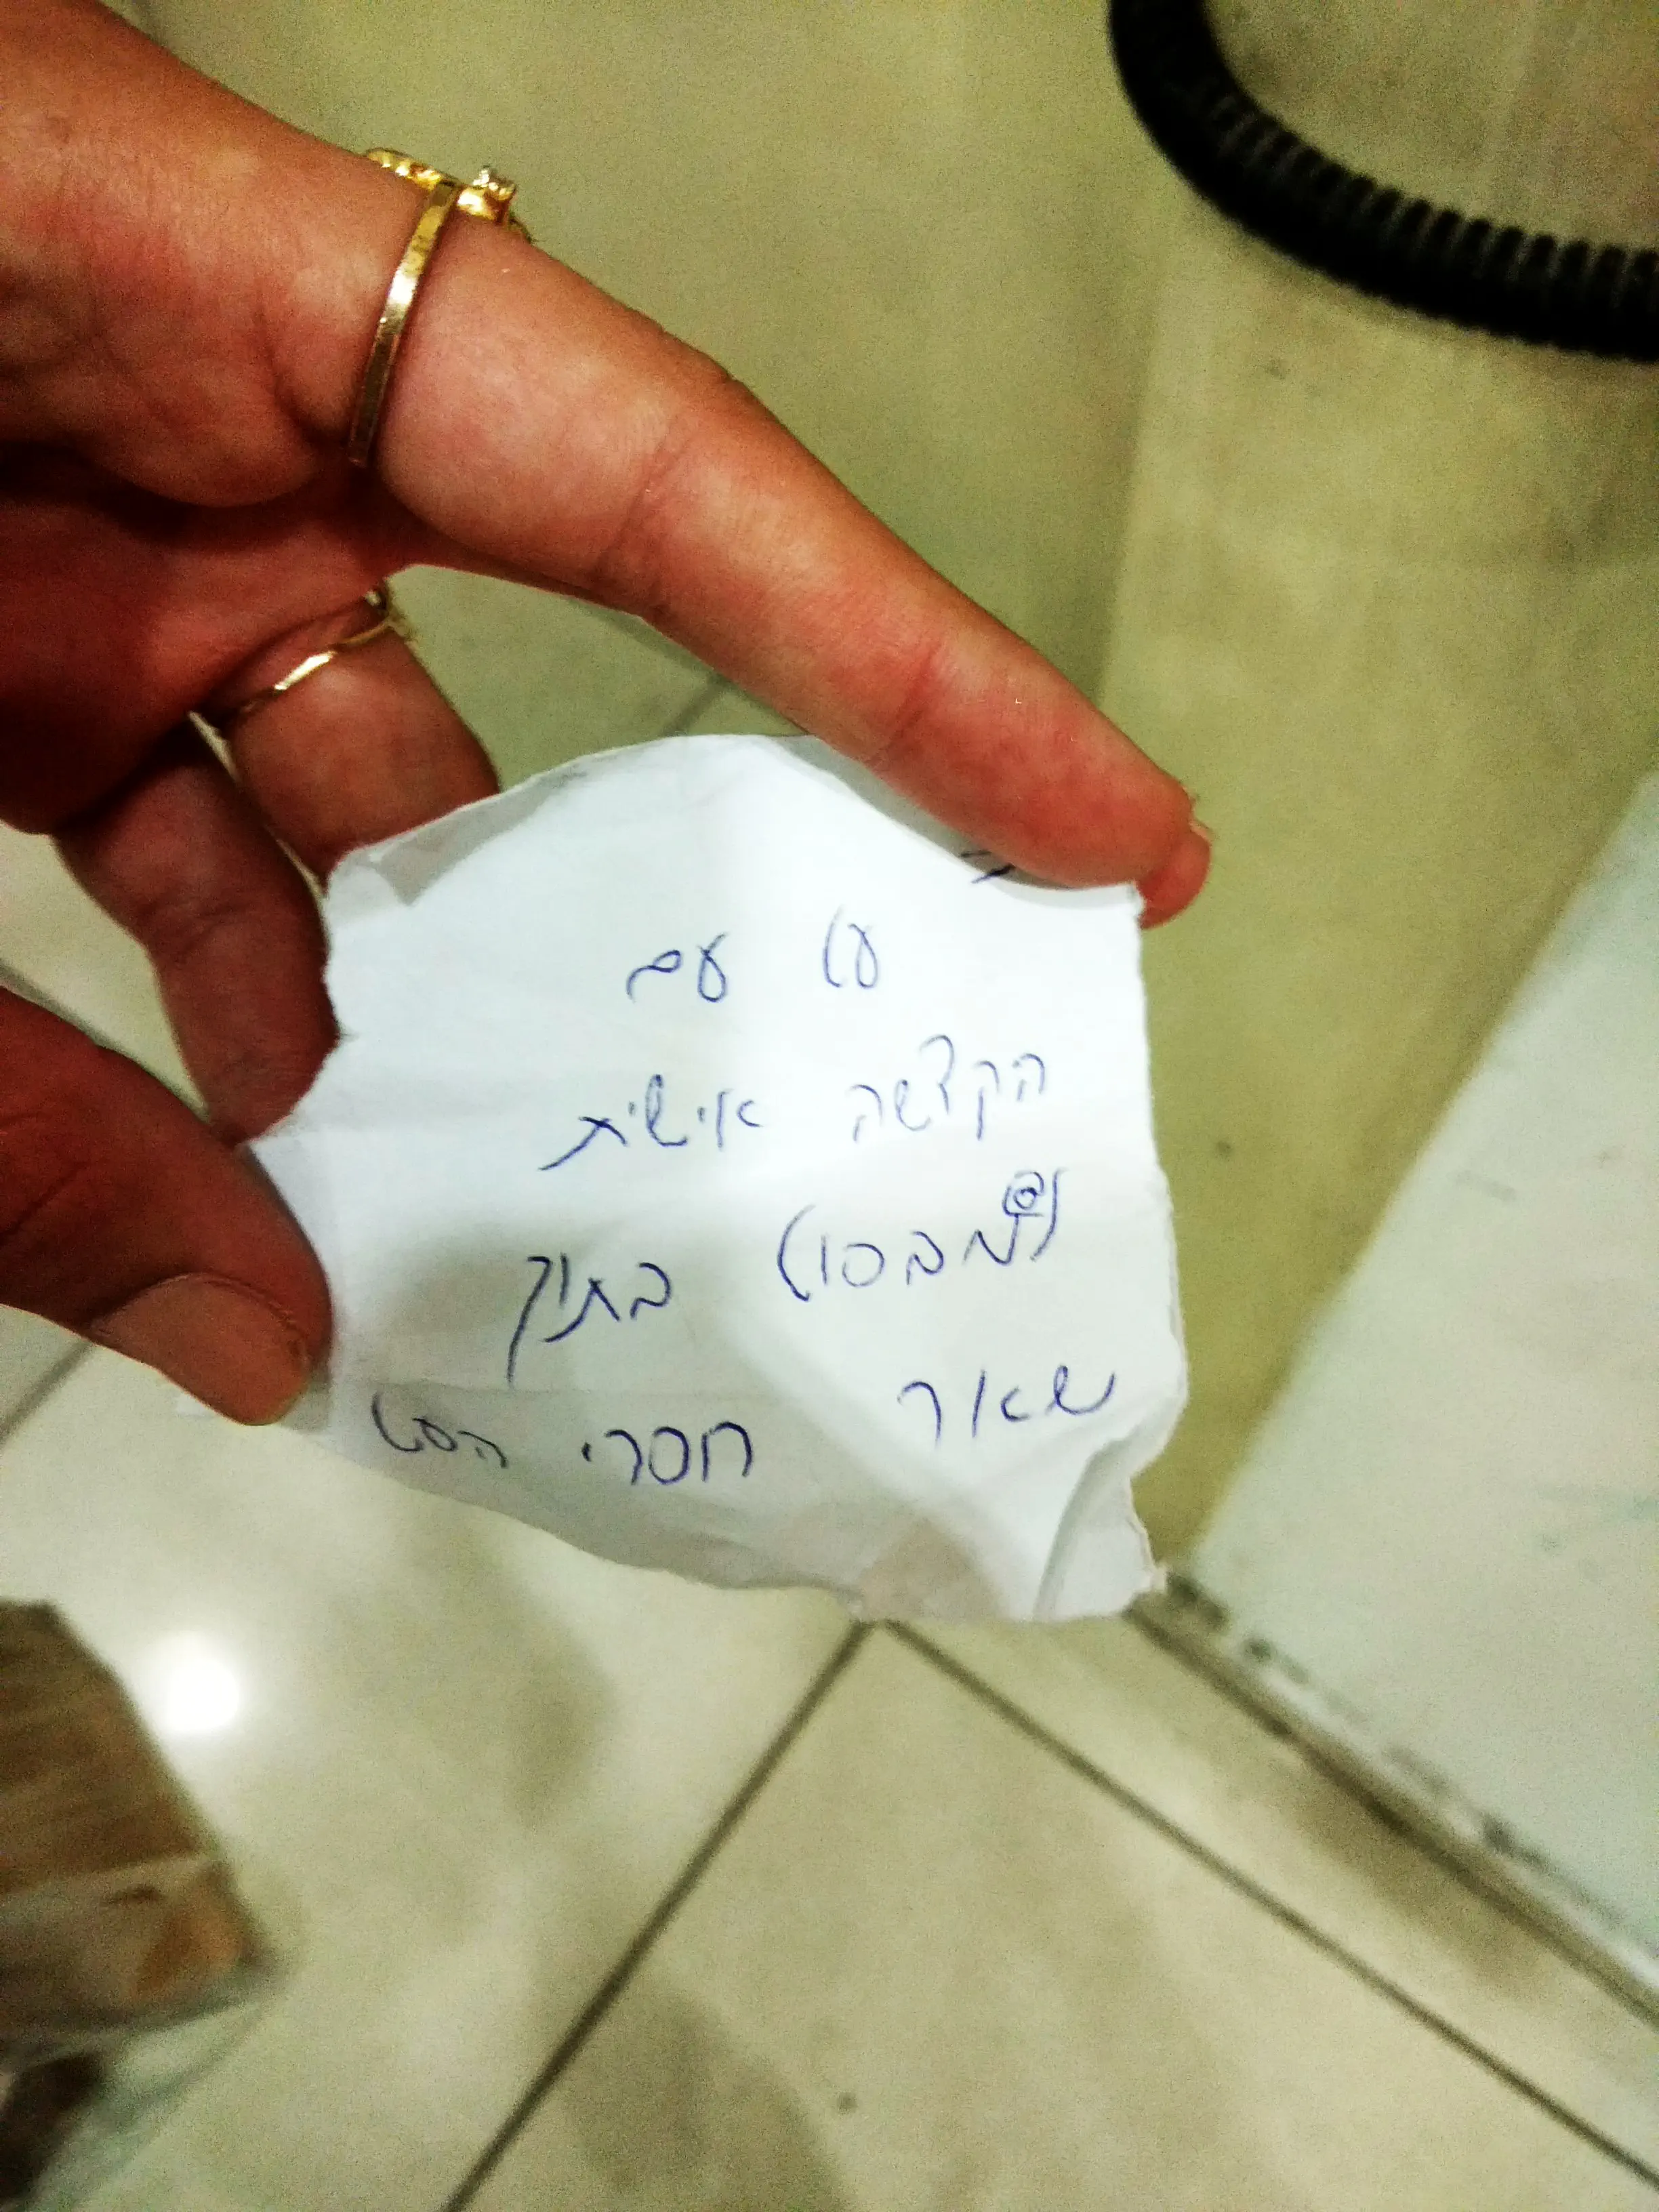 עט עם
הקדשה אישית
למבסוט בתוך
שאר חסרי הסט